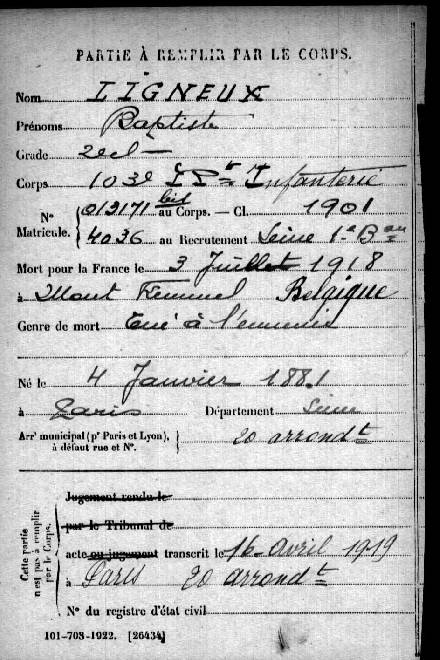 PARTIE À REMPLIR PAR LE CORPS.
Nom LIGNEUX
Prénoms Baptiste
Grade 2e cl
Corps 103e Rt Infanterie
Nos Matricule. 012171 bis au Corps. — Cl. 1901
4036 au Recrutement Seine 1er Bau
Mort pour la France le 3 Juillet 1918
à Mont Kemmel Belgique
Genre de mort Tué à l'ennemi
Né le 4 Janvier 1881
à Paris Département Seine
Arrt municipal (pr Paris et Lyon), à défaut rue et N°. 20 arrondt
Cette partie n'est pas à remplir par le Corps.
Jugement rendu le
par le Tribunal de
acte ou jugement transcrit le 16 Avril 1919
à Paris 20 arrondt
N° du registre d'état civil
101-708-1922. [26434]